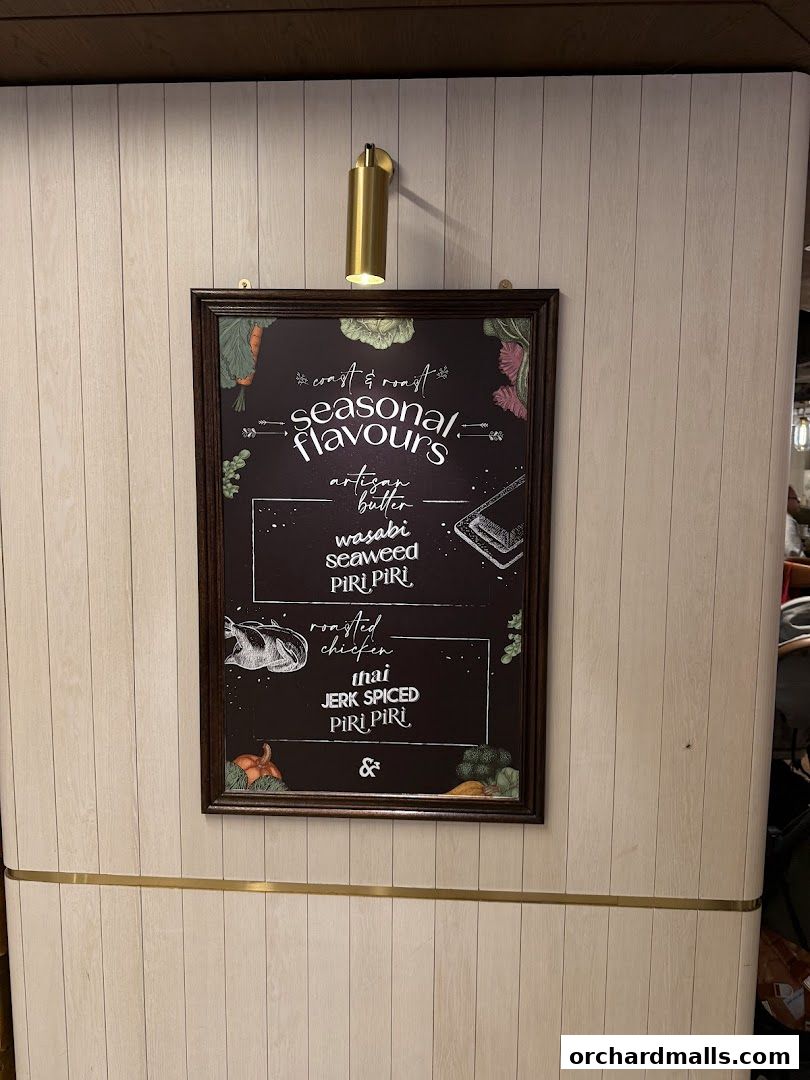 coast & roast
seasonal
flavours
artisan
butter
wasabi
seaweed
PiRi PiRi
roasted
chicken
thai
JERK SPICED
PiRi PiRi
&
orchardmalls.com